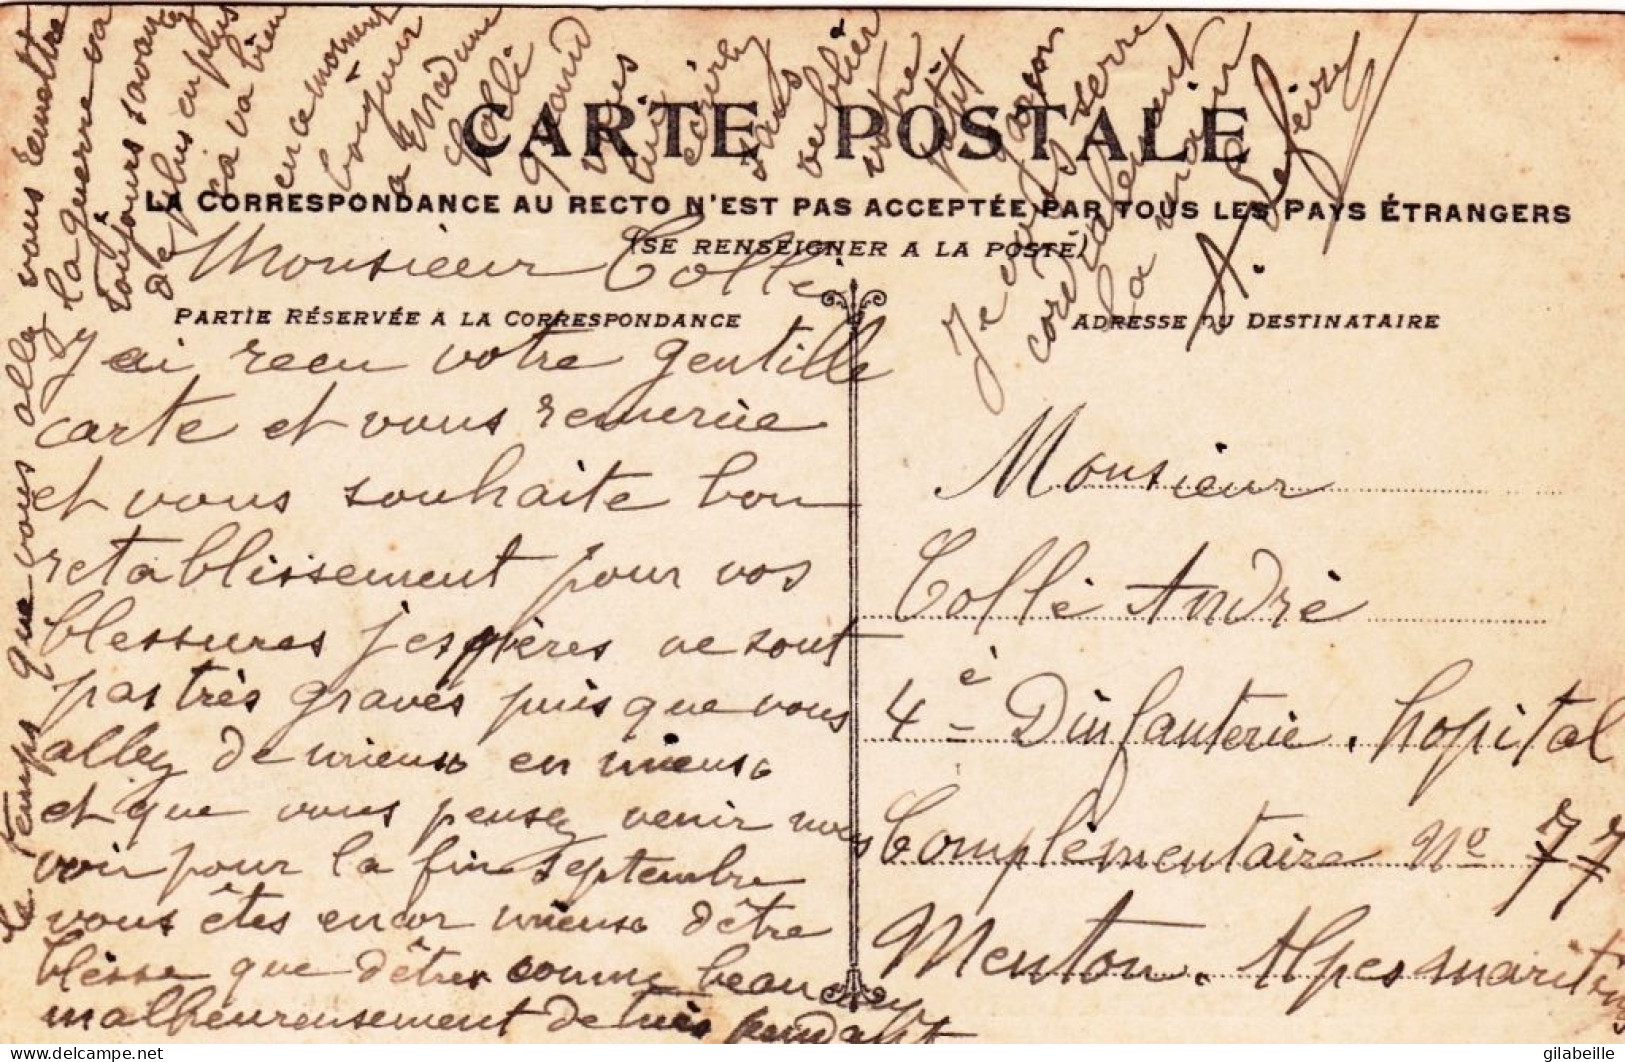 CARTE POSTALE
LA CORRESPONDANCE AU RECTO N'EST PAS ACCEPTÉE PAR TOUS LES PAYS ÉTRANGERS
(SE RENSEIGNER A LA POSTE)
PARTIE RÉSERVÉE A LA CORRESPONDANCE
ADRESSE DU DESTINATAIRE
Monsieur Collé
J'ai recu votre gentille
carte et vous remercie
et vous souhaite bon
retablissement pour vos
blessures j'espères ne sont
pas très graves puis que vous
allez de mieus en mieus
et que vous pensez venir nous
voir pour la fin septembre
vous êtes encor mieus d'être
blèsse que d'être comme beaucoup
malheureusement de tués pendant
le temps que vous allez vous remettre
la guerre va
toujours savancez
de plus en plus
sa va bien
en ce moment
bonjour
a Madame
Collé
quand
vous
lui
écirez
sans
oublier
votre
petit
garcon
Je vous serre
cordialement
la main
A. Lefèivre
Monsieur
Collé André
4è D'infanterie. hopital
Complémentaire No 77
Menton. Alpes maritimes
gilabeille